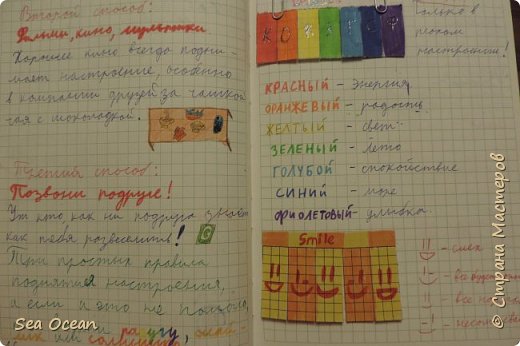 Второй способ:
Фильмы, кино, мультики
Хорошее кино всегда подни-
мает настроение, особенно
в компании друзей за чашкой
чая с шоколадкой.
Третий способ:
Позвони подруге!
Уж кто как ни подруга знает
как тебя развеселить!
Три простых правила
поднятия настроения,
а если и это не
или радугу,
Только в
плохом
настроении!
КРАСНЫЙ - Энергия
ОРАНЖЕВЫЙ - радость
ЖЕЛТЫЙ - свет
ЗЕЛЕНЫЙ - лето
ГОЛУБОЙ - спокойствие
СИНИЙ - море
ФИОЛЕТОВЫЙ - улыбка
Smile
- смех
- все
- все
Sea Ocean
© Страна Мастеров